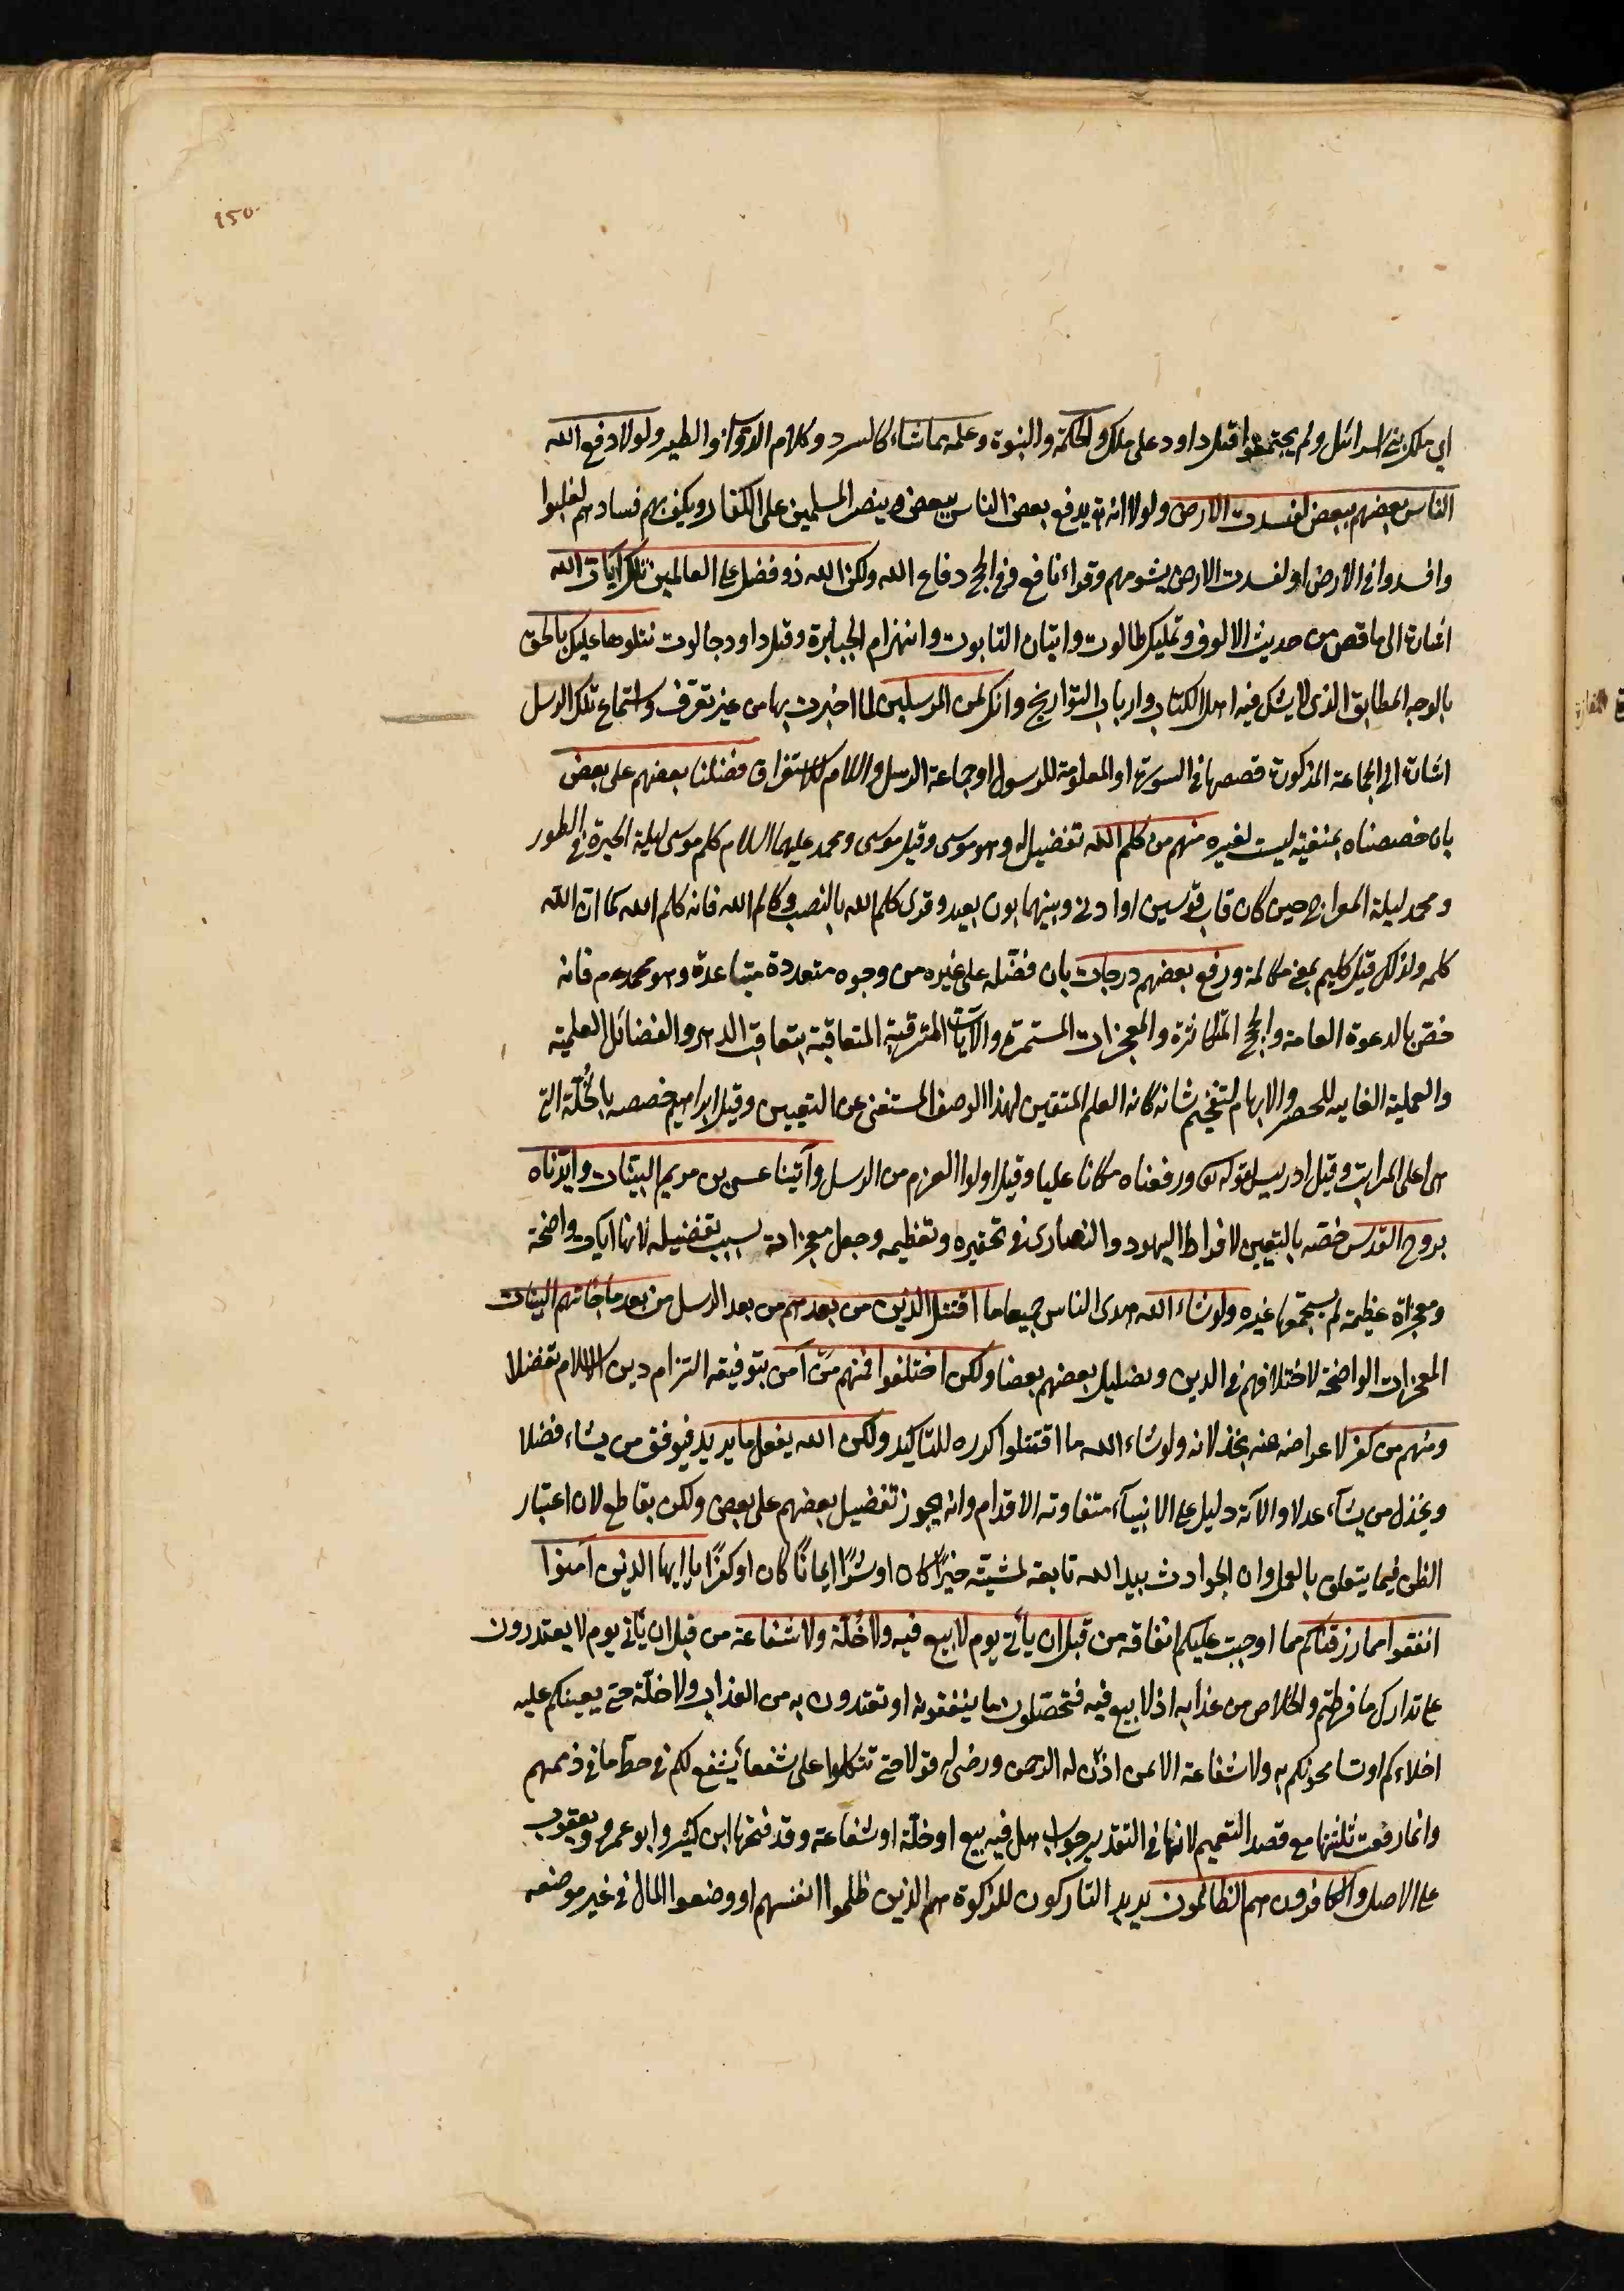 ١٥٠
اي ملك بني اسرائيل ولم يجتمعوا قبل داود على ملك والحكمة والنبوة وعلمه مما شاء كالسرد وكلام الدواب والطير ولولا دفع الله
الناس بعضهم ببعض لفسدت الارض ولولا انه تع يدفع بعض الناس ببعض وينصر المسلمين على الكفار ويكف بهم فسادهم لغلبوا
وافسدوا في الارض او لفسدت الارض بشومهم وقراء نافع وفي الحج دفاع الله ولكن الله ذو فضل على العالمين تلك آيات الله
اشارة الى ما قص من حديث الالوف وتمليك طالوت واتيان التابوت وانهزام الجبابرة وقتل داود جالوت نتلوها عليك بالحق
بالوجه المطابق الذي لا يشك فيه اهل الكتاب وارباب التواريخ وانك لمن المرسلين لما اخبرت بها من غير تعرف واستماع تلك الرسل
اشارة الى الجماعة المذكورة قصصها في السورة او المعلومة للرسول او جماعة الرسل واللام للاستغراق فضلنا بعضهم على بعض
بان خصصناه بمنقبة ليست لغيره منهم من كلم الله تفضيل له وهو موسى وقيل موسى ومحمد عليهما السلام كلم موسى ليلة الحيرة في الطور
ومحمد ليلة المعراج حين كان قاب قوسين او ادنى وبينهما بون بعيد وقرئ كلم الله بالنصب وكالم الله فانه كلم الله كما ان الله
كلمه ولذلك قيل كليم بمعنى مكالمه ورفع بعضهم درجات بان فضّله على غيره من وجوه متعددة متباعدة وهو محمد عم فانه
خصّ بالدعوة العامة والحج المتكاثرة والمعجزات المستمرة والآيات المترقية المتعاقبة بتعاقب الدهر والفضائل العلمية
والعملية الفايته للحصر والابهام لتفخيم شانه كانه العلم المتعين لهذا الوصف المستغنى عن التعيين وقيل ابراهيم خصصه بالخُلّة التي
هي اعلى المراتب وقيل ادريس لقوله تع ورفعناه مكانا عليا وقيل اولوا العزم من الرسل وآتينا عيسى بن مريم البينات وايدناه
بروح القدس خصّه بالتعيين لافراط اليهود والنصارى في تحقيره وتعظيمه وجعل معجزاته سبب تفضيله لانها آيات واضحة
ومعجزاة عظيمة لم يستجمعها غيره ولو شاء الله هدى الناس جميعا ما اقتتل الذين من بعدهم من بعد الرسل من بعد ما جائتهم البينات
المعجزات الواضحة لاختلافهم في الدين وتضليل بعضهم بعضا ولكن اختلفوا فمنهم من آمن بتوفيقه التزام دين الاسلام تفضلا
ومنهم من كفر لاعراضه عنه بخذلانه ولو شاء الله ما اقتتلوا كرره للتاكيد ولكن الله يفعل ما يريد فيوفق من يشاء فضلا
ويخذل من يشآء عدلا والآية دليل على الانبيآء متفاوتة الاقدام وانه يجوز تفضيل بعضهم على بعض ولكن بقاطع لان اعتبار
الظن فيما يتعلق بالعمل وان الحوادث بيد الله تابعة لمشيته خيرًا كان او شرًا ايمانًا كان او كفرًا يا ايها الذين آمنوا
انفقوا مما رزقناكم مما اوجبت عليكم انفاقه من قبل ان يأتي يوم لا بيع فيه ولا خُلّة ولا شفاعة من قبل ان يأتي يوم لا يعتدرون
على تدارك ما فرطتم والخلاص من عذابه اذ لا بيع فيه فتحصّلون ما ينفقونه او تفتدون به من العذاب ولا خلّة حتى يعينكم عليه
اخلاءكم او تسامحونكم به ولا شفاعة الا لمن اذن له الرحمن ورضى له قولا حتى تتكلوا على شفعاء يشفع لكم في حط ما في ذممهم
وانما رفعت ثلثتها مع قصد التعميم لانها في التقدير جواب هل فيه بيع او خلّة او شفاعة وقد فتحها ابن كثير وابو عمرو ويعقوب
على الاصل والكافرون هم الظالمون يريد التاركون للزكوة هم الذين ظلموا انفسهم او وضعوا المال في غير موضعه